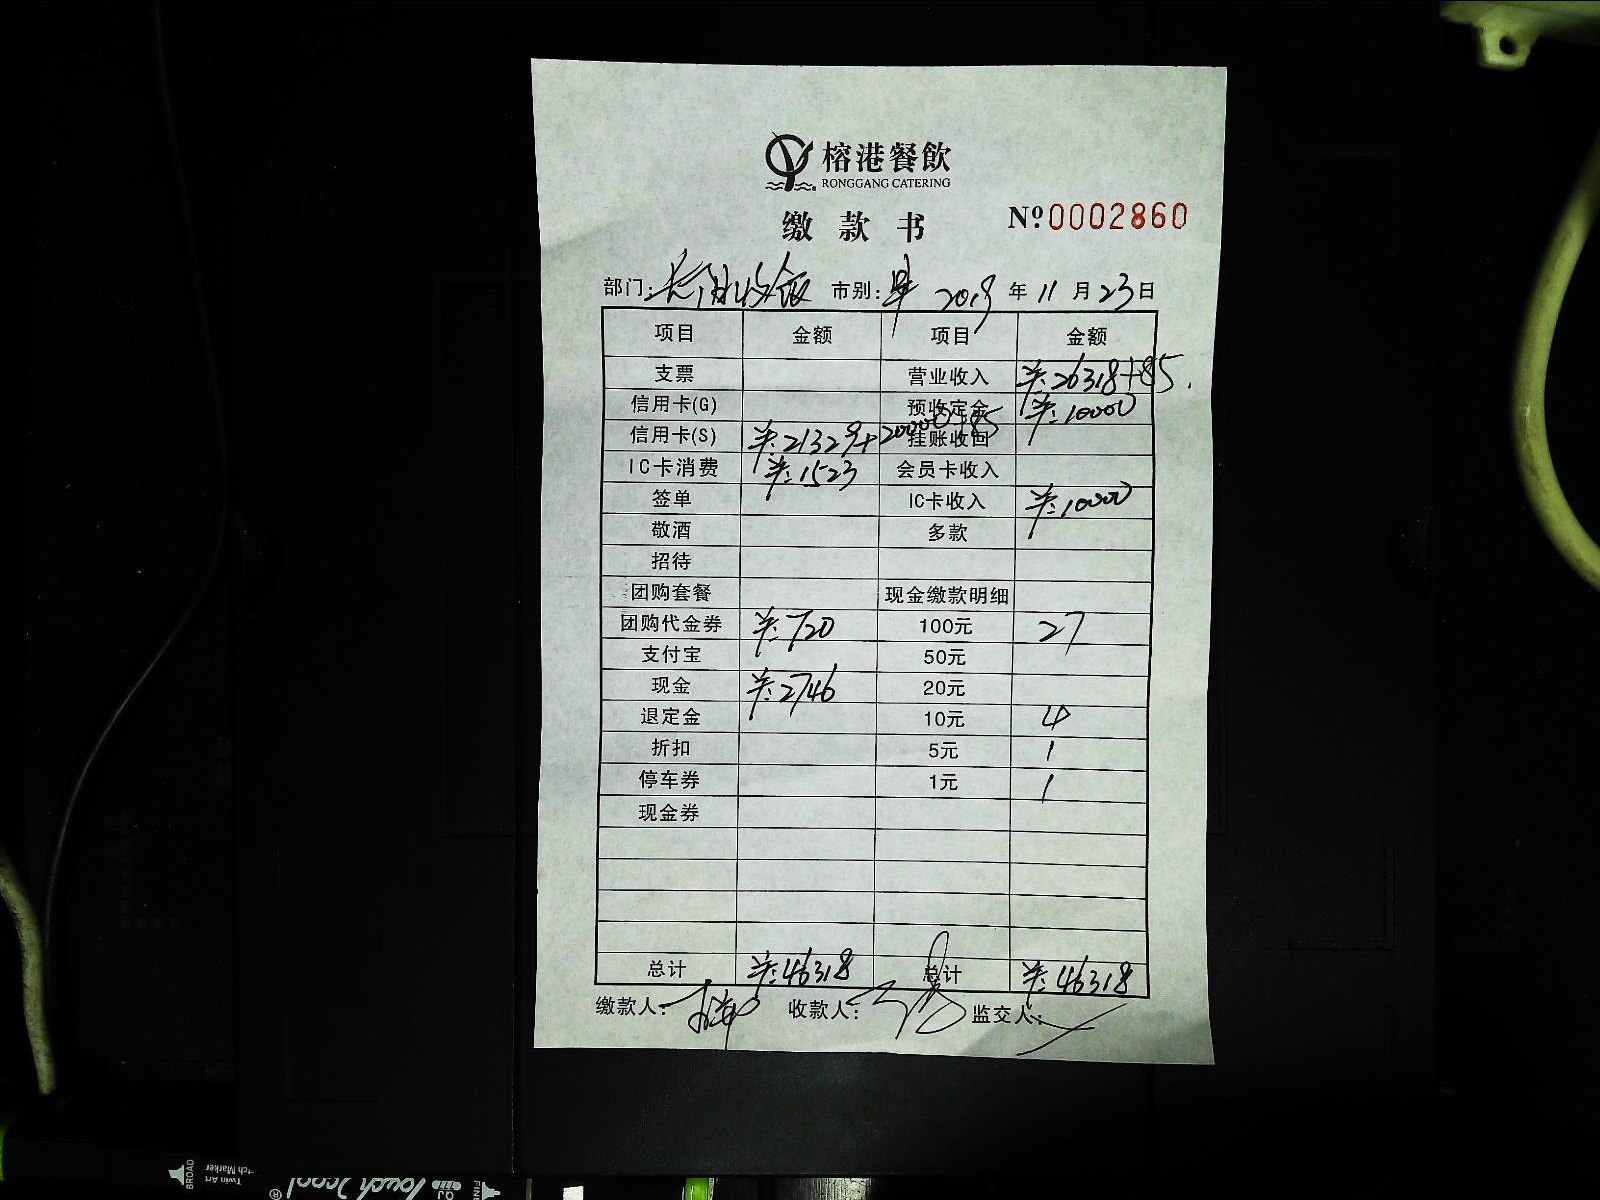 榕港餐飲
RONGGANG CATERING
缴款书 №0002860
部门: 市别: 2019年11月23日
项目 金额 项目 金额
支票 营业收入 ¥:26318+85.
信用卡(G) 预收定金 ¥:10000
信用卡(S) ¥:21329+20000+85 挂账收回
IC卡消费 ¥:1523 会员卡收入
签单 IC卡收入 ¥:10000
敬酒 多款
招待
团购套餐 现金缴款明细
团购代金券 ¥:720 100元 27
支付宝 50元
现金 ¥:2746 20元
退定金 10元 4
折扣 5元 1
停车券 1元 1
现金券
总计 ¥:46318 总计 ¥:46318
缴款人: 收款人: 监交人:
BROAD
Twin Art
Touch
cool
®